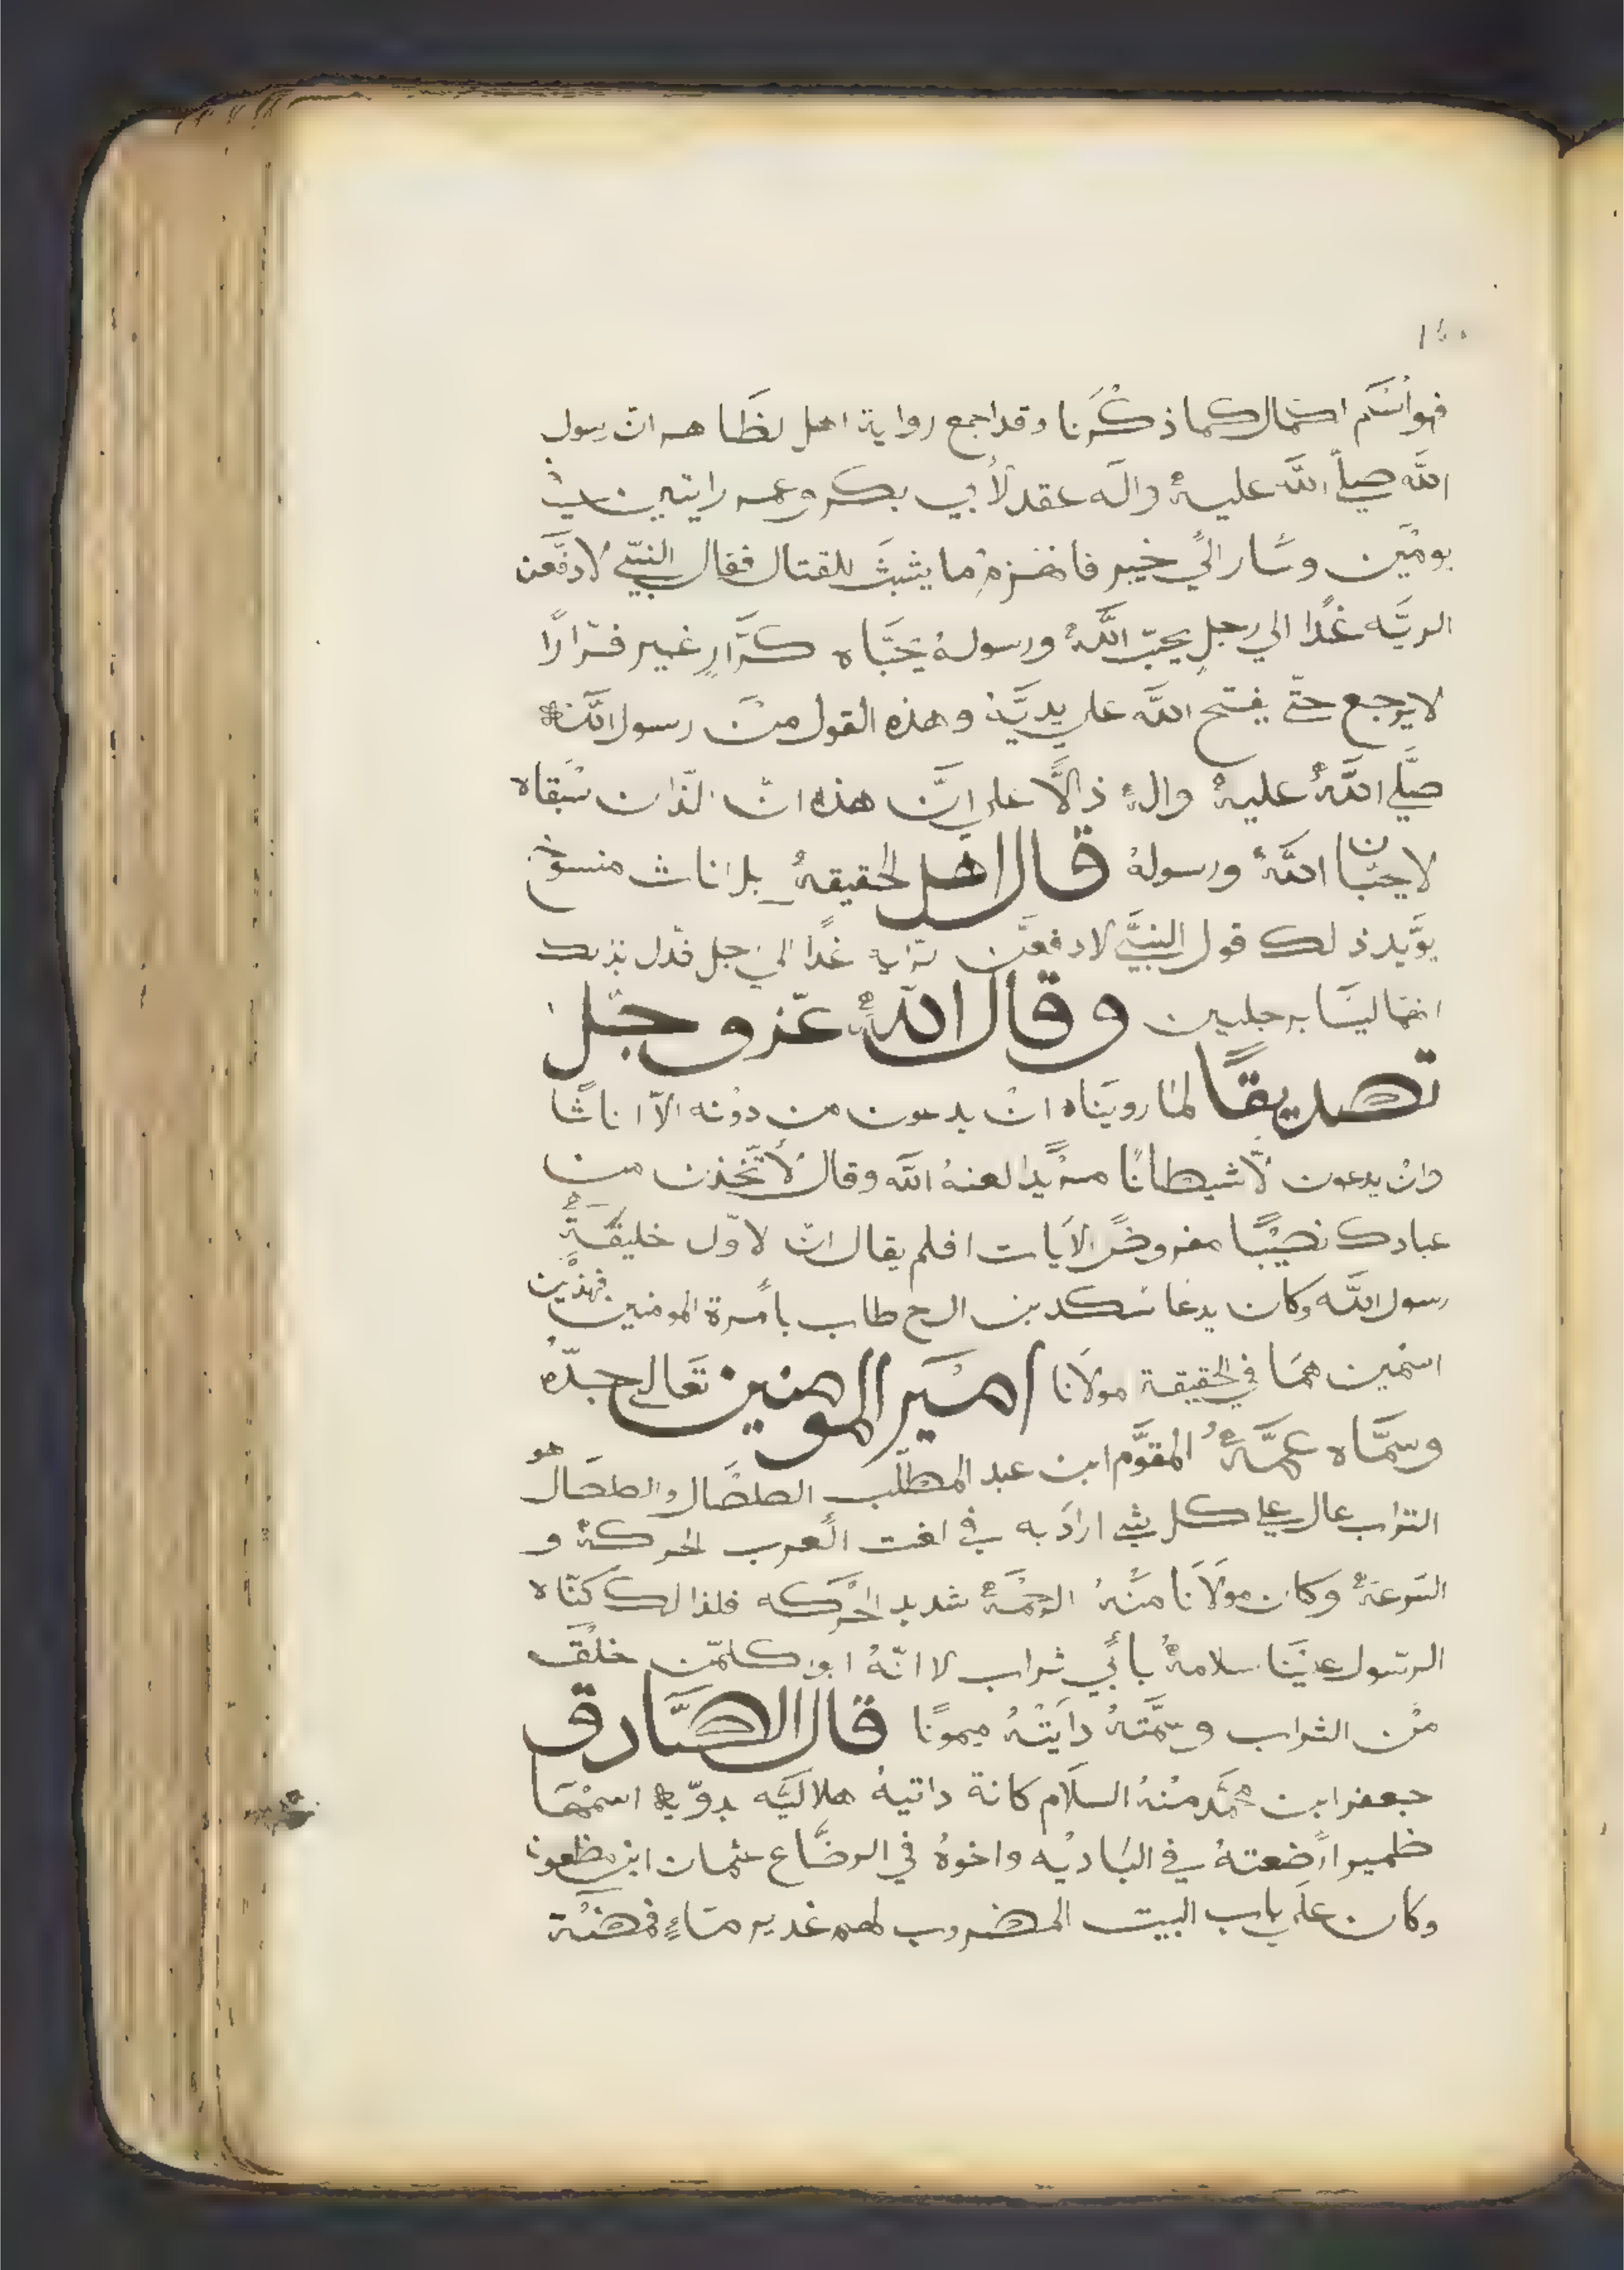 فهو اسم الكمال كما ذكرنا وقد اجمع رواية اهل لظاهر ان رسول
الله صلى الله عليه واله عقد لأبي بكر وعمر رايتين في
يومين وسار الى خيبر فانهزم ما يثبث للقتال فقال النبي لادفعن
الريه غدا الى رجل يحب الله ورسوله يحباه كرار غير فرارا
لا يرجع حتى يفتح الله على يديه وهذه القول من رسول الله
صلى الله عليه واله ذالا على ان هذه ان الذان سبقاه
لا يحبان الله ورسوله قال اهل الحقيقه بل اناث منسوخ
يؤيد ذلك قول النبي لادفعن غدا الى رجل فدل بذلك
انهما ليسا برجلين وقال الله عز وجل
تصديقا لما رويناه ان يدعون من دونه الا اناثا
وان يدعون لا شيطانا مريدا لعنه الله وقال لاتخذن من
عبادك نصيبا مفروضا الايات افلم يقال ان لاول خليفة
رسول الله وكان يدعا بن الخ طاب بأمرة المومنين فهذين
اسمين هما في الحقيقة مولانا امير المومنين تعالى جده
وسماه عمه المقوم ابن عبد المطلب الصلصال والصلصال هو
التراب عال على كل شي اراد به في لغت العرب الحركة و
السرعة وكان مولانا منه الرحمة شديد الحركه فلذالك كناه
الرسول علينا سلامه بأبي ثراب لا انه ابو كلمن خلق
من الثراب وسمته دايته ميمونا قال الصادق
جعفر ابن محمد منه السلام كانة داتيه هلاليه بدويه اسمها
ظمير ارضعته في الباديه واخوه في الرضاع عثمان ابن مظعون
وكان على باب البيت المضروب لهم غدير ماء فمضة